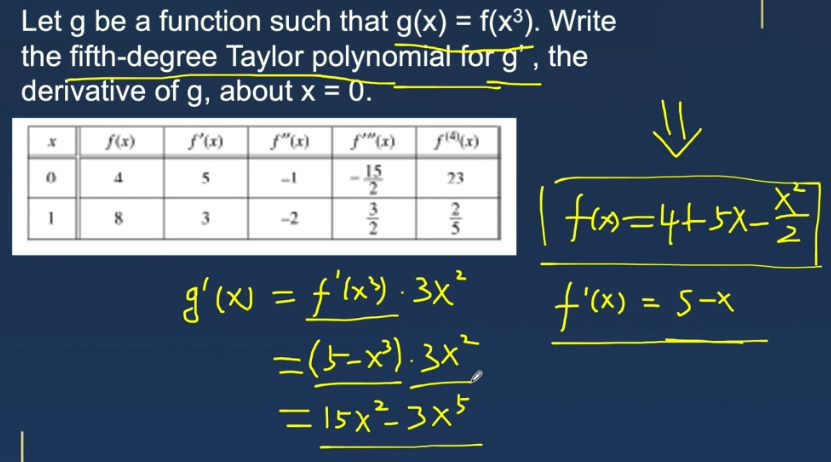 Let g be a function such that g(x) = f(x³). Write
the fifth-degree Taylor polynomial for g' , the
derivative of g, about x = 0.
x f(x) f'(x) f''(x) f'''(x) f⁽⁴⁾(x)
0 4 5 -1 -15/2 23
1 8 3 -2 3/2 2/5
f(x)=4+5x-x²/2
g'(x) = f'(x³) · 3x²
f'(x) = 5-x
=(5-x³).3x²
= 15x²-3x⁵